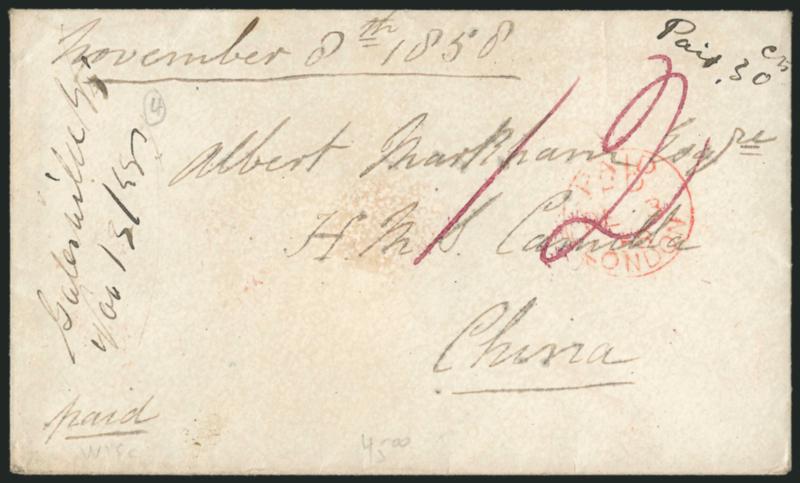 November 8th 1858
Paid 30 cts
Galesville Wis
Nov 13/58
4
Albert Markham Esqre
H.M.S. Camilla
China
1/2
PAID
LONDON
paid
Wisc
4500